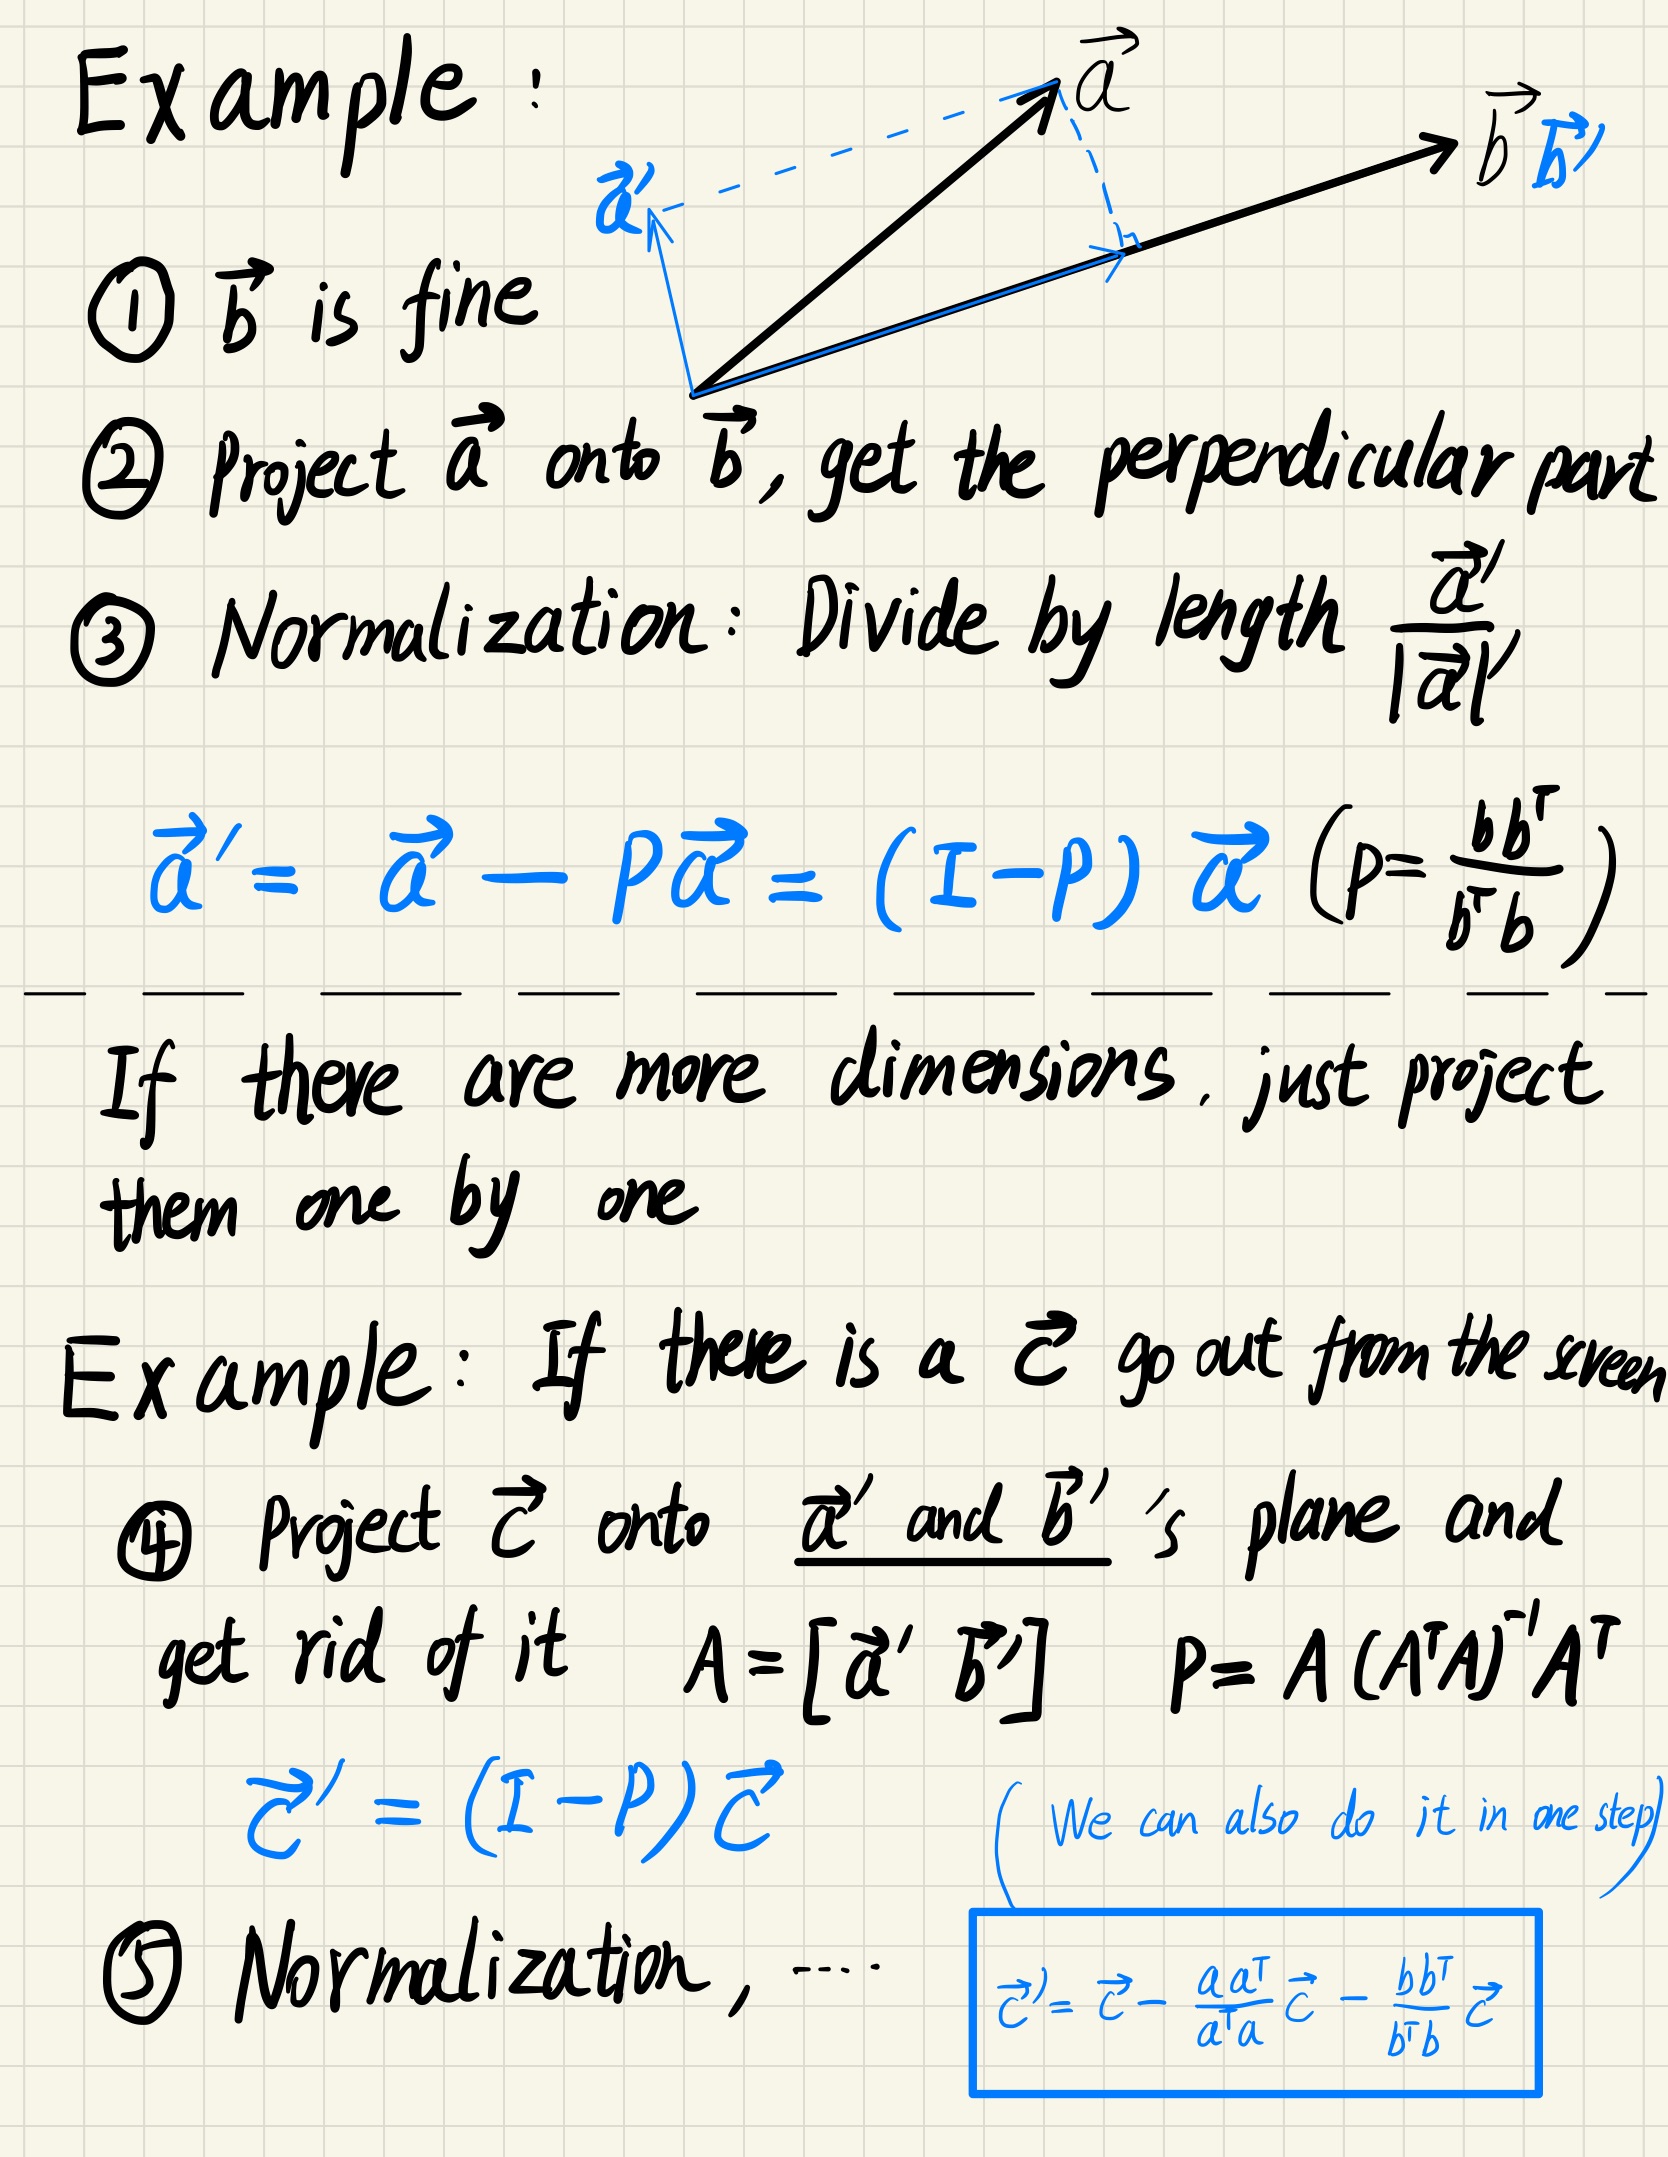 Example :
a⃗
b⃗ b⃗′
a⃗′
① b⃗ is fine
② Project a⃗ onto b⃗, get the perpendicular part
③ Normalization: Divide by length a⃗′/|a⃗|′
a⃗′ = a⃗ — Pa⃗ = (I-P) a⃗ (P= bbᵀ/bᵀb)
If there are more dimensions, just project
them one by one
Example: If there is a c⃗ go out from the screen
④ Project c⃗ onto a⃗′ and b⃗′ 's plane and
get rid of it A=[a⃗′ b⃗′] P= A(AᵀA)⁻¹Aᵀ
c⃗′ = (I-P)c⃗
(We can also do it in one step)
⑤ Normalization, ....
c⃗′= c⃗ - aaᵀ/aᵀa c⃗ - bbᵀ/bᵀb c⃗